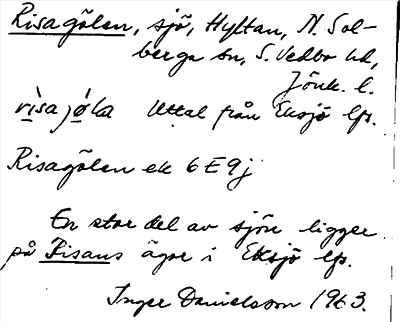 Risagölen, sjö, Hyltan, N. Sol-
berga sn, S. Vedbo hd,
Jönk. l.
rìsajø̀la Uttal från Eksjö lfs.
Risagölen ek 6E9j
En stor del av sjön ligger
på Risans ägor i Eksjö lfs.
Inger Danielsson 1963.